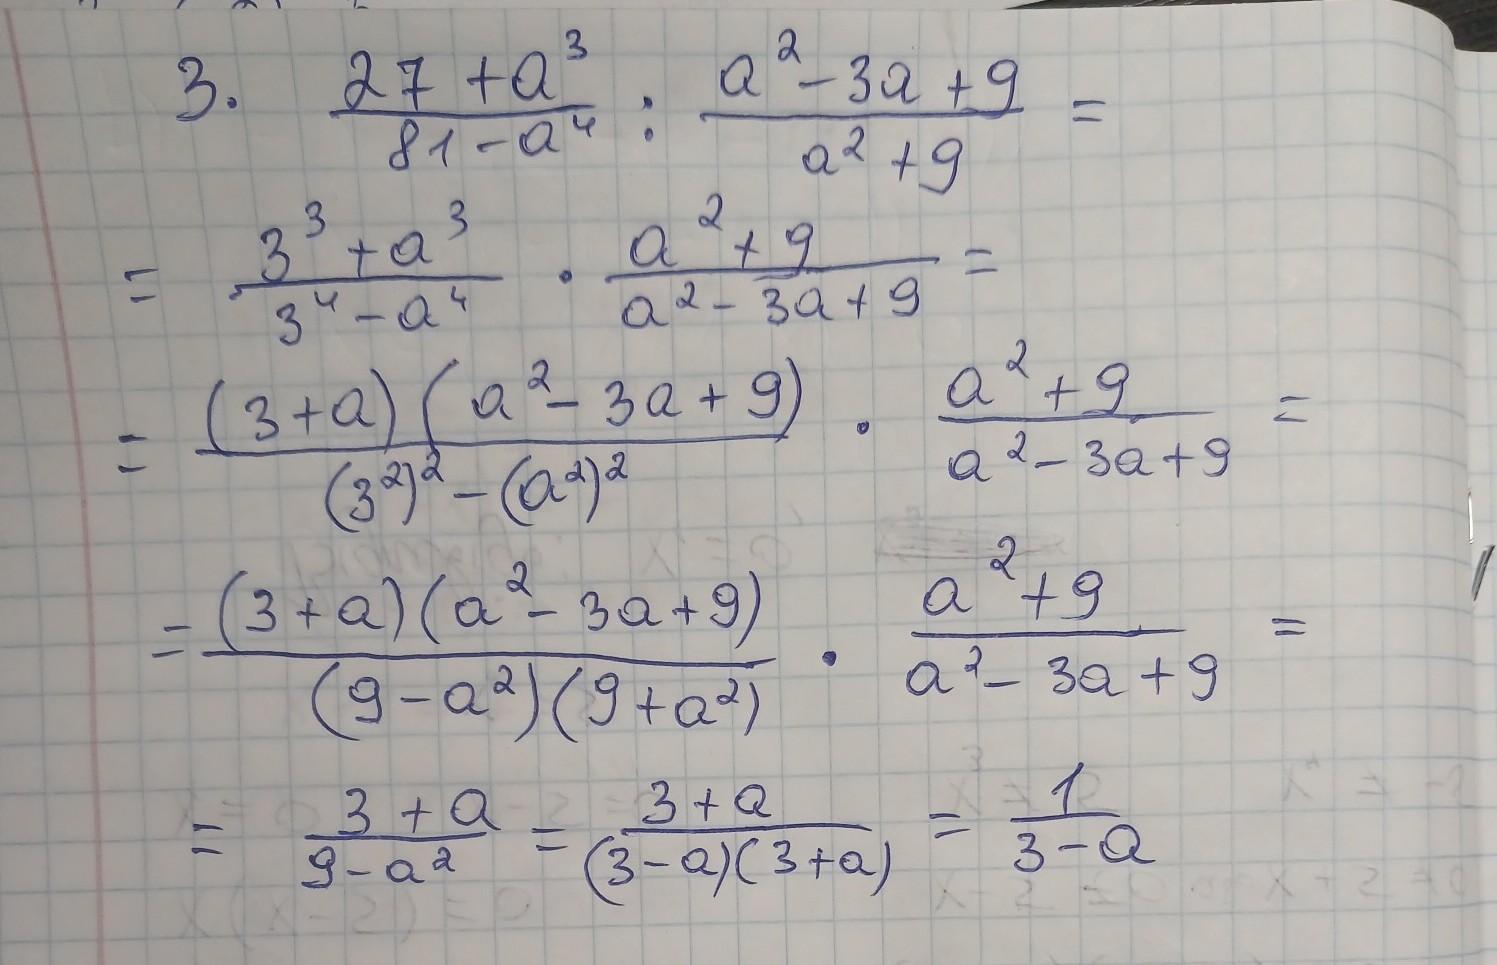 3. (27 + a³)/(81 - a⁴) : (a² - 3a + 9)/(a² + 9) =
= (3³ + a³)/(3⁴ - a⁴) · (a² + 9)/(a² - 3a + 9) =
= ((3 + a)(a² - 3a + 9))/((3²)² - (a²)²) · (a² + 9)/(a² - 3a + 9) =
= ((3 + a)(a² - 3a + 9))/((9 - a²)(9 + a²)) · (a² + 9)/(a² - 3a + 9) =
= (3 + a)/(9 - a²) = (3 + a)/((3 - a)(3 + a)) = 1/(3 - a)